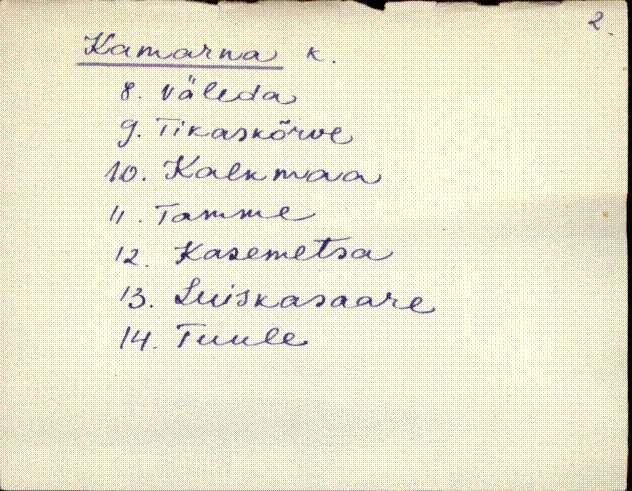 2.
Kamarna k.
8. Väleda
9. Tikaskõrve
10. Kalkmaa
11. Tamme
12. Kasemetsa
13. Luiskasaare
14. Tuule